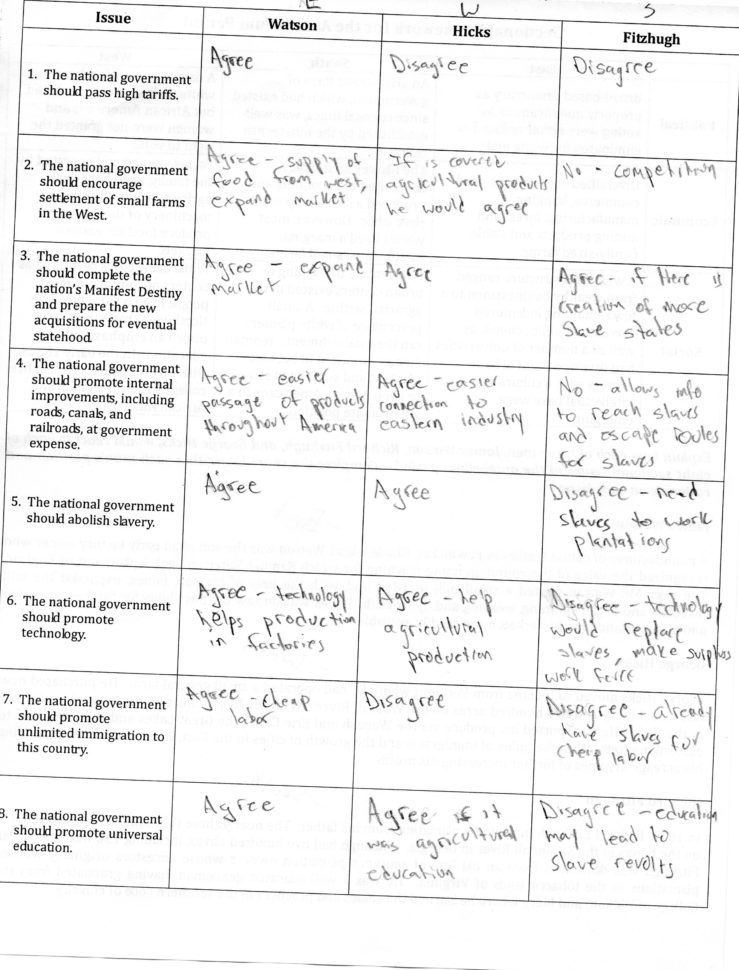 E W S
Issue Watson Hicks Fitzhugh
1. The national government
should pass high tariffs.
Agree
Disagree
Disagree
2. The national government
should encourage
settlement of small farms
in the West.
Agree - supply of
food from west,
expand market
If is covered
agricultural products
he would agree
No - competition
3. The national government
should complete the
nation's Manifest Destiny
and prepare the new
acquisitions for eventual
statehood.
Agree - expand
market
Agree
Agree - if there is
creation of more
slave states
4. The national government
should promote internal
improvements, including
roads, canals, and
railroads, at government
expense.
Agree - easier
passage of products
throughout America
Agree - easier
connection to
eastern industry
No - allows info
to reach slaves
and escape routes
for slaves
5. The national government
should abolish slavery.
Agree
Agree
Disagree - need
slaves to work
plantations
6. The national government
should promote
technology.
Agree - technology
helps production
in factories
Agree - help
agricultural
production
Disagree - technology
would replace
slaves, make surplus
work force
7. The national government
should promote
unlimited immigration to
this country.
Agree - cheap
labor
Disagree
Disagree - already
have slaves for
cheap labor
8. The national government
should promote universal
education.
Agree
Agree if it
was agricultural
education
Disagree - education
may lead to
slave revolts